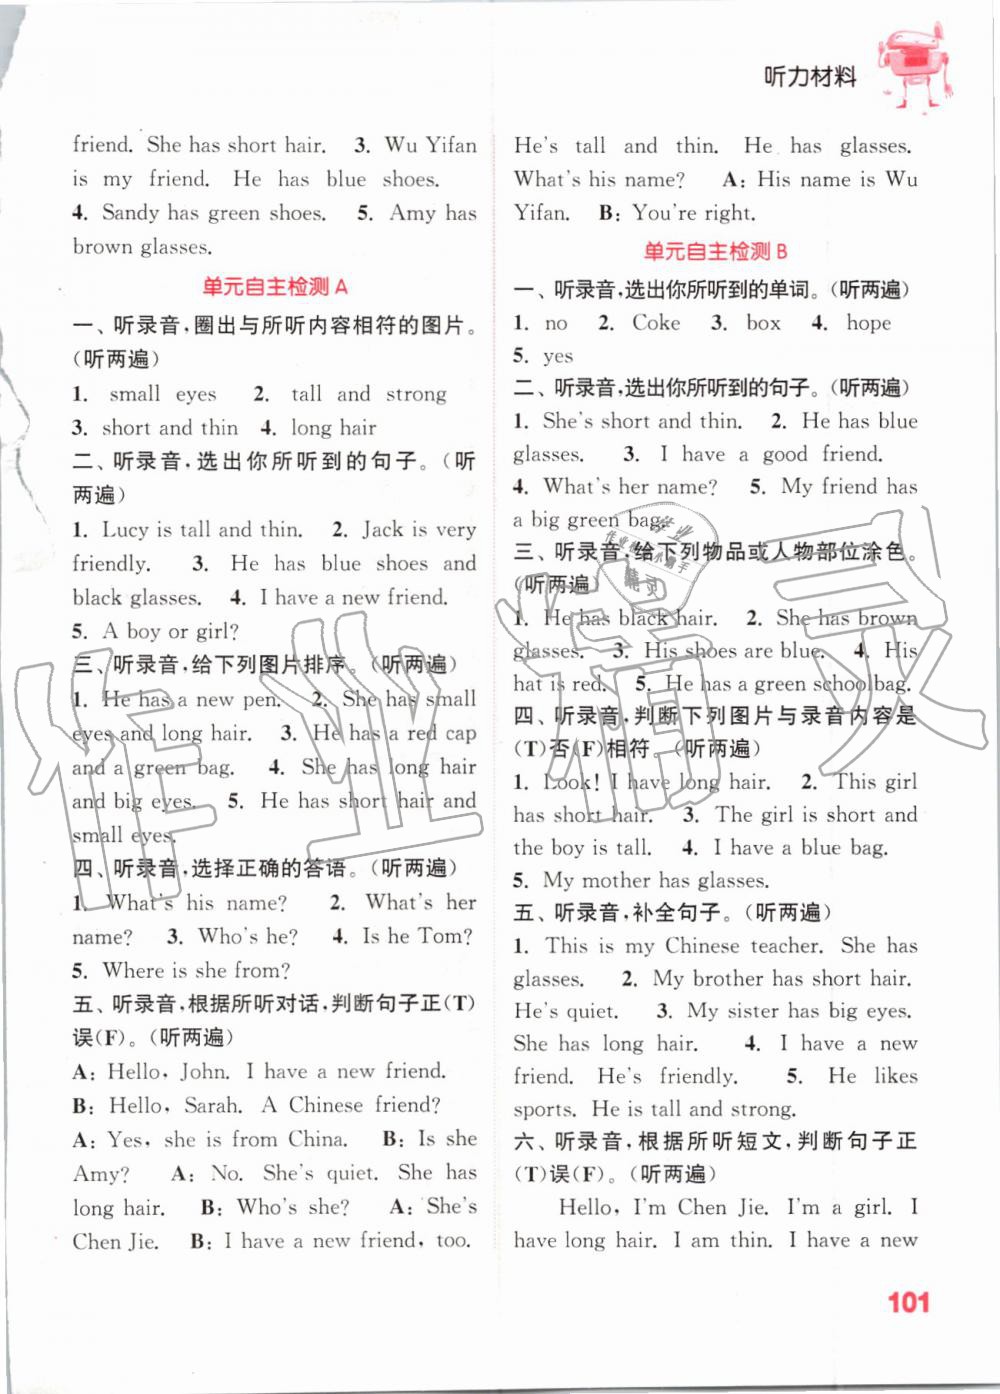 听力材料
friend. She has short hair. 3. Wu Yifan
is my friend. He has blue shoes.
4. Sandy has green shoes. 5. Amy has
brown glasses.
单元自主检测 A
一、听录音,圈出与所听内容相符的图片。
(听两遍)
1. small eyes 2. tall and strong
3. short and thin 4. long hair
二、听录音,选出你所听到的句子。(听
两遍)
1. Lucy is tall and thin. 2. Jack is very
friendly. 3. He has blue shoes and
black glasses. 4. I have a new friend.
5. A boy or girl?
三、听录音,给下列图片排序。(听两遍)
1. He has a new pen. 2. She has small
eyes and long hair. 3. He has a red cap
and a green bag. 4. She has long hair
and big eyes. 5. He has short hair and
small eyes.
四、听录音,选择正确的答语。(听两遍)
1. What's his name? 2. What's her
name? 3. Who's he? 4. Is he Tom?
5. Where is she from?
五、听录音,根据所听对话,判断句子正(T)
误(F)。(听两遍)
A: Hello, John. I have a new friend.
B: Hello, Sarah. A Chinese friend?
A: Yes, she is from China. B: Is she
Amy? A: No. She's quiet. She has
long hair. B: Who's she? A: She's
Chen Jie. B: I have a new friend, too.
He's tall and thin. He has glasses.
What's his name? A: His name is Wu
Yifan. B: You're right.
单元自主检测 B
一、听录音,选出你所听到的单词。(听两遍)
1. no 2. Coke 3. box 4. hope
5. yes
二、听录音,选出你所听到的句子。(听两遍)
1. She's short and thin. 2. He has blue
glasses. 3. I have a good friend.
4. What's her name? 5. My friend has
a big green bag.
三、听录音,给下列物品或人物部位涂色。
(听两遍)
1. He has black hair. 2. She has brown
glasses. 3. His shoes are blue. 4. His
hat is red. 5. He has a green schoolbag.
四、听录音,判断下列图片与录音内容是
(T)否(F)相符。(听两遍)
1. Look! I have long hair. 2. This girl
has short hair. 3. The girl is short and
the boy is tall. 4. I have a blue bag.
5. My mother has glasses.
五、听录音,补全句子。(听两遍)
1. This is my Chinese teacher. She has
glasses. 2. My brother has short hair.
He's quiet. 3. My sister has big eyes.
She has long hair. 4. I have a new
friend. He's friendly. 5. He likes
sports. He is tall and strong.
六、听录音,根据所听短文,判断句子正
(T)误(F)。(听两遍)
Hello, I'm Chen Jie. I'm a girl. I
have long hair. I am thin. I have a new
101
作业精灵